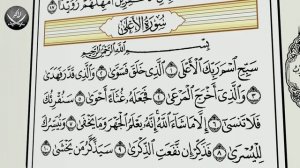 أَمْهِلْهُمْ رُوَيْدًا ١٧
سُورَةُ الْأَعْلَى
بِسْمِ اللَّهِ الرَّحْمَٰنِ الرَّحِيمِ
سَبِّحِ اسْمَ رَبِّكَ الْأَعْلَى ١ الَّذِي خَلَقَ فَسَوَّىٰ ٢ وَالَّذِي قَدَّرَ فَهَدَىٰ
٣ وَالَّذِي أَخْرَجَ الْمَرْعَىٰ ٤ فَجَعَلَهُ غُثَاءً أَحْوَىٰ ٥ سَنُقْرِئُكَ
فَلَا تَنسَىٰ ٦ إِلَّا مَا شَاءَ اللَّهُ إِنَّهُ يَعْلَمُ الْجَهْرَ وَمَا يَخْفَىٰ ٧ وَنُيَسِّرُكَ
لِلْيُسْرَىٰ ٨ فَذَكِّرْ إِن نَّفَعَتِ الذِّكْرَىٰ ٩ سَيَذَّكَّرُ مَن يَخْشَىٰ ١٠